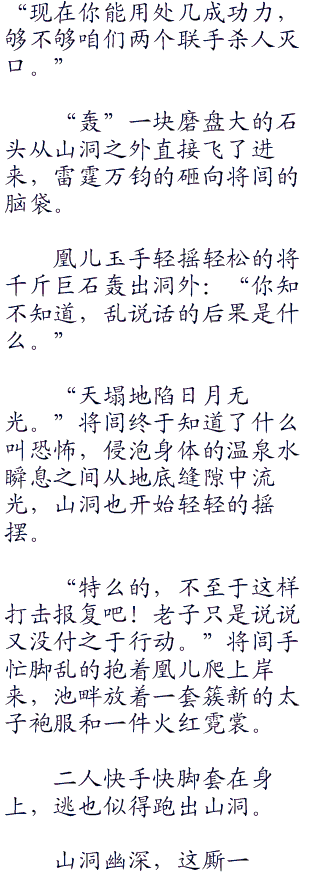 “现在你能用处几成功力，
够不够咱们两个联手杀人灭
口。”
“轰”一块磨盘大的石
头从山洞之外直接飞了进
来，雷霆万钧的砸向将闾的
脑袋。
凰儿玉手轻摇轻松的将
千斤巨石轰出洞外：“你知
不知道，乱说话的后果是什
么。”
“天塌地陷日月无
光。”将闾终于知道了什么
叫恐怖，侵泡身体的温泉水
瞬息之间从地底缝隙中流
光，山洞也开始轻轻的摇
摆。
“特么的，不至于这样
打击报复吧！老子只是说说
又没付之于行动。”将闾手
忙脚乱的抱着凰儿爬上岸
来，池畔放着一套簇新的太
子袍服和一件火红霓裳。
二人快手快脚套在身
上，逃也似得跑出山洞。
山洞幽深，这厮一